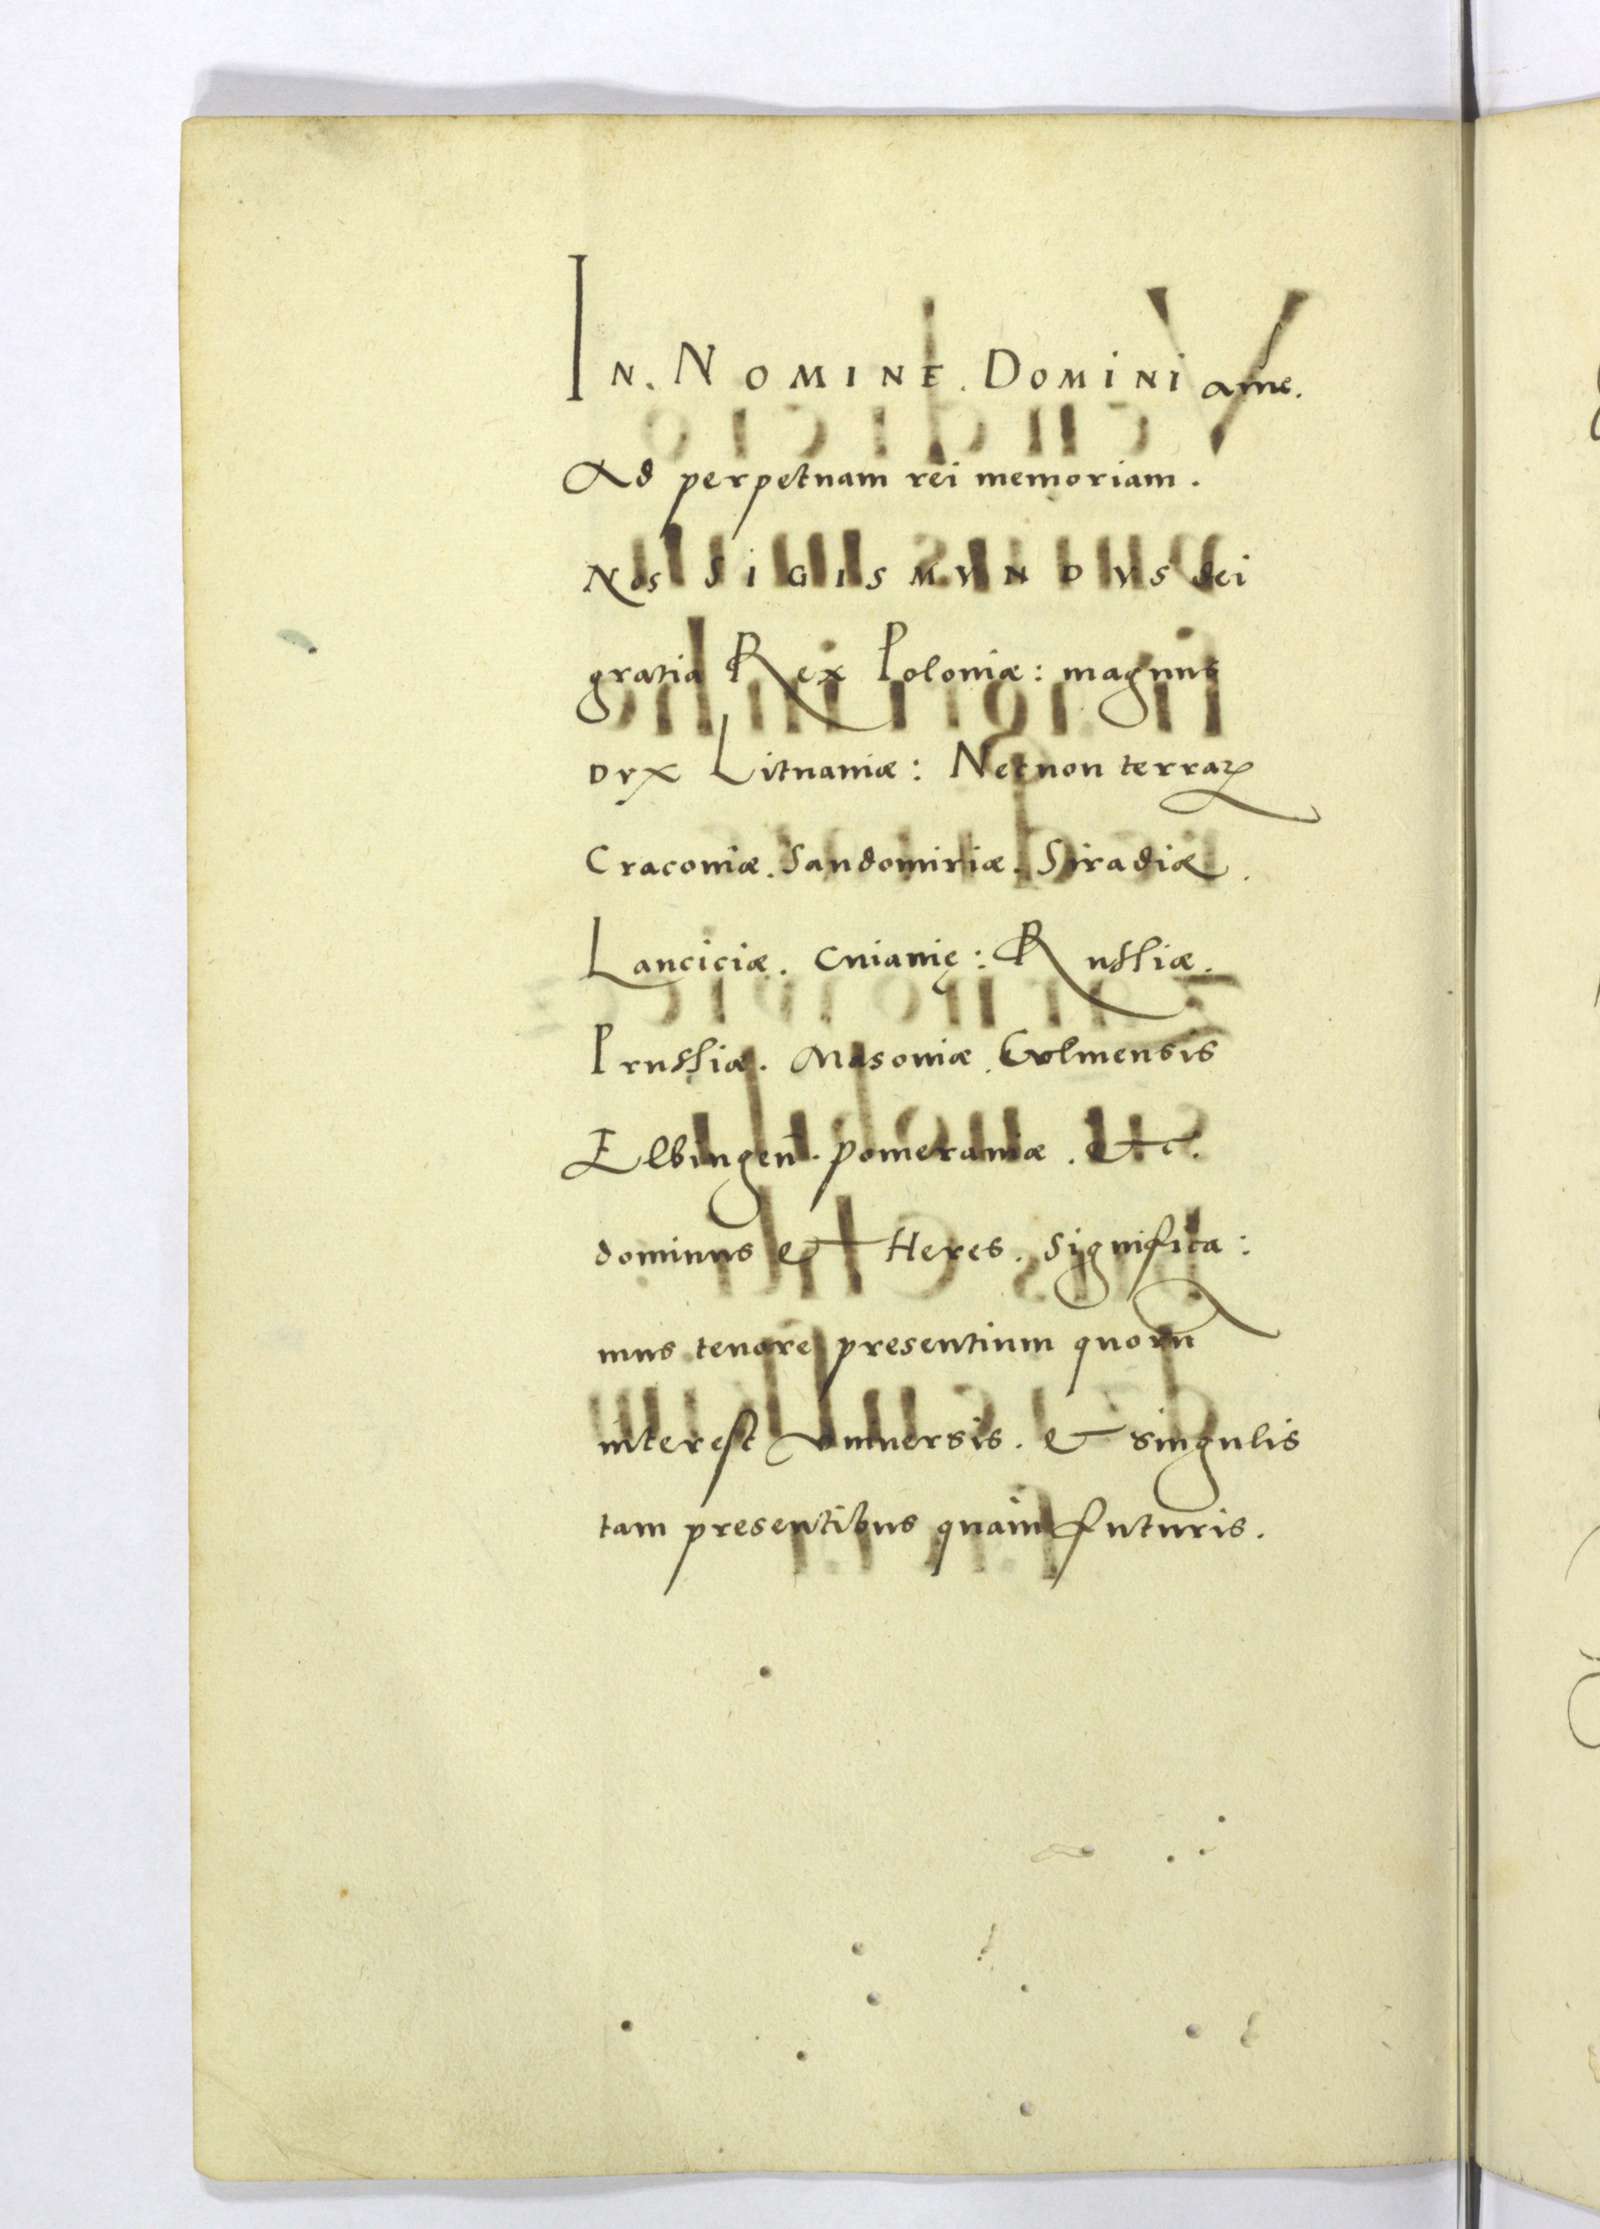 IN. NOMINE. DOMINI ame.
Ad perpetuam rei memoriam.
Nos SIGISMVNDVS dei
gratia Rex Poloniæ: magnus
DVX Lituaniæ: Necnon terraꝝ
Cracoviæ. Sandomiriæ. Siradiæ.
Lanciciæ. Cuiavię: Russiæ.
Prussiæ. Masoviæ. Culmensis
Elbingen̄. pomeraniæ. &c.
dominus & Heres. Significa:
mus tenore presentium quorū
interest vniuersis. & singulis
tam presentibus quam futuris.